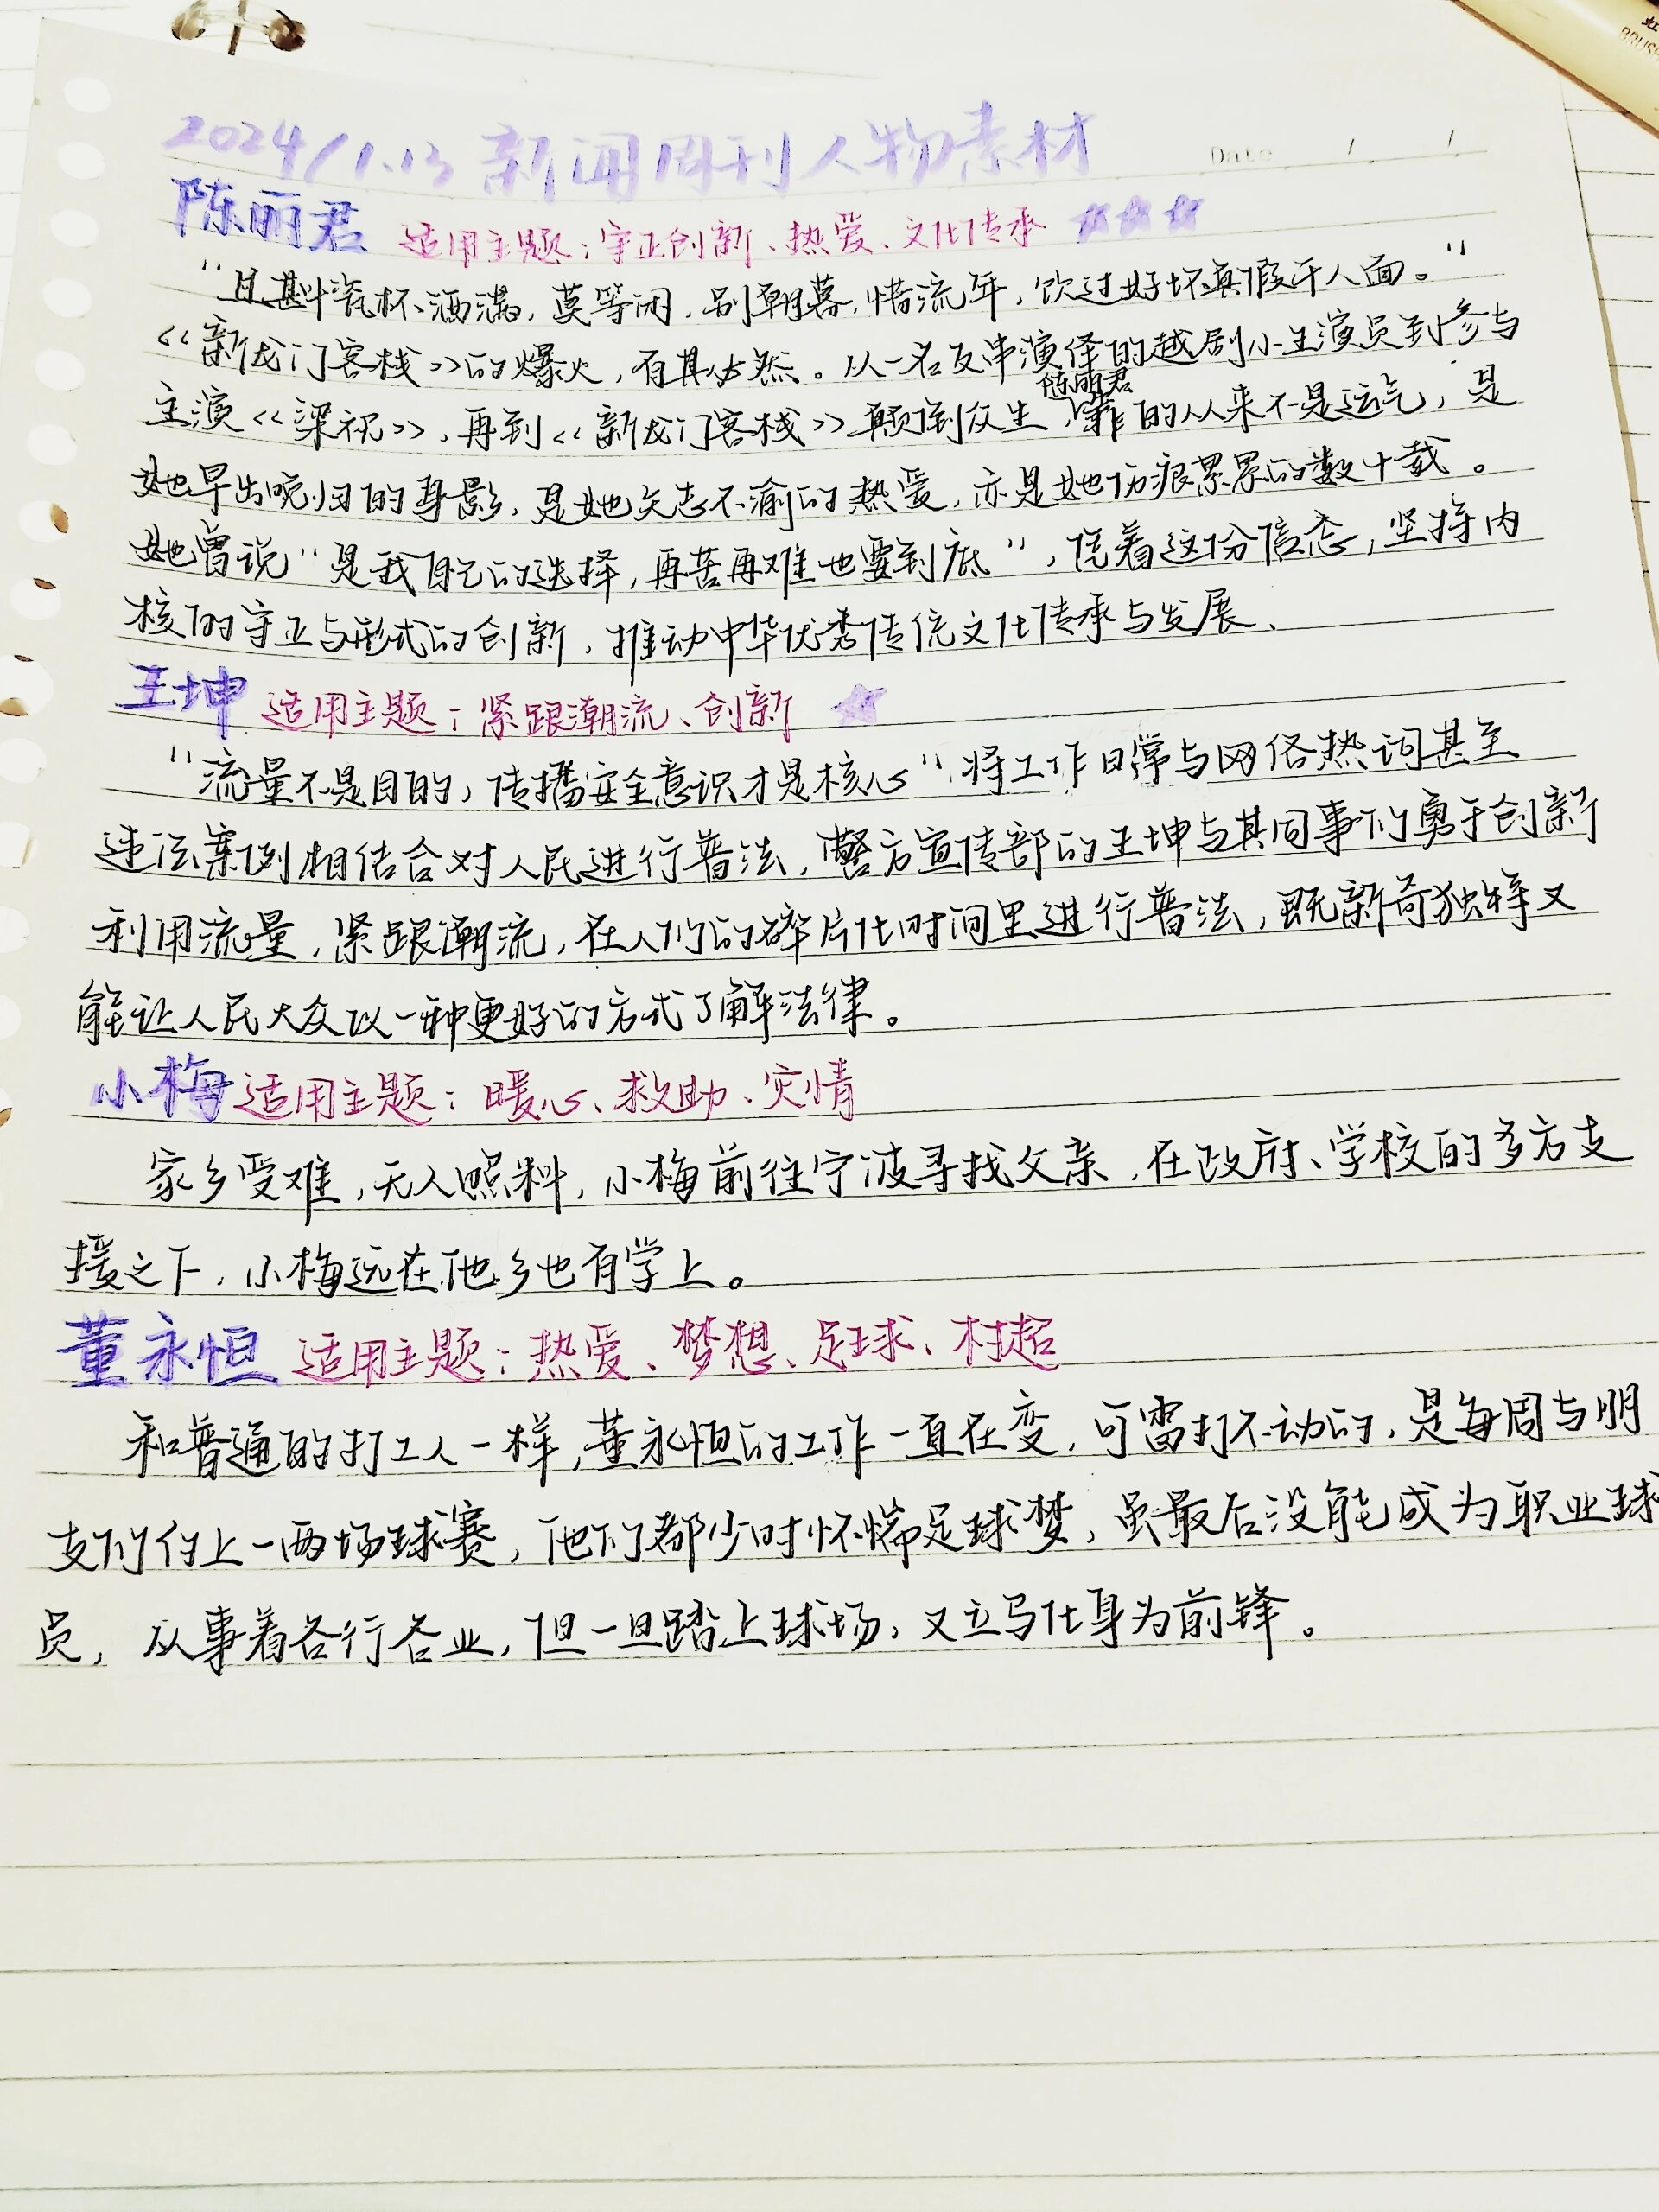 2024/1.13 新闻周刊人物素材
Date / /
陈丽君 适用主题：守正创新、热爱、文化传承 ☆☆☆
“且斟瓷杯洒满，莫等闲，别朝暮，惜流年，饮过好坏真假千人面。”
《新龙门客栈》的爆火，有其必然。从一名反串演绎的越剧小生演员到参与
主演《梁祝》，再到《新龙门客栈》颠倒众生，陈丽君靠的从来不是运气，是
她早出晚归的身影，是她矢志不渝的热爱，亦是她伤痕累累的数十载。
她曾说“是我自己的选择，再苦再难也要到底”，凭着这份信念，坚持内
核的守正与形式的创新，推动中华优秀传统文化传承与发展、
王坤 适用主题：紧跟潮流、创新 ☆
“流量不是目的，传播安全意识才是核心”将工作日常与网络热词甚至
违法案例相结合对人民进行普法，警方宣传部的王坤与其同事们勇于创新
利用流量，紧跟潮流，在人们的碎片化时间里进行普法，既新奇独特又
能让人民大众以一种更好的方式了解法律。
小梅 适用主题：暖心、救助、灾情
家乡受难，无人照料，小梅前往宁波寻找父亲，在政府、学校的多方支
援之下，小梅远在他乡也有学上。
董永恒 适用主题：热爱、梦想、足球、村超
和普通的打工人一样，董永恒的工作一直在变，可雷打不动的，是每周与朋
友们约上一两场球赛，他们都少时怀揣足球梦，虽最后没能成为职业球
员，从事着各行各业，但一旦踏上球场，又立马化身为前锋。